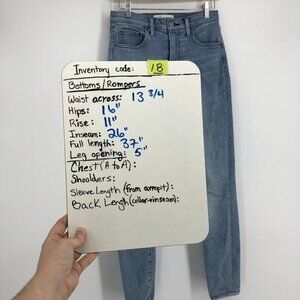 Inventory code: 18
Bottoms/Rompers
Waist across: 13 3/4
Hips: 16"
Rise: 11"
Inseam: 26"
Full length: 37"
Leg opening: 5"
Chest (A to A):
Shoulders:
Sleeve Length (from armpit):
Back Length (collar→inseam):